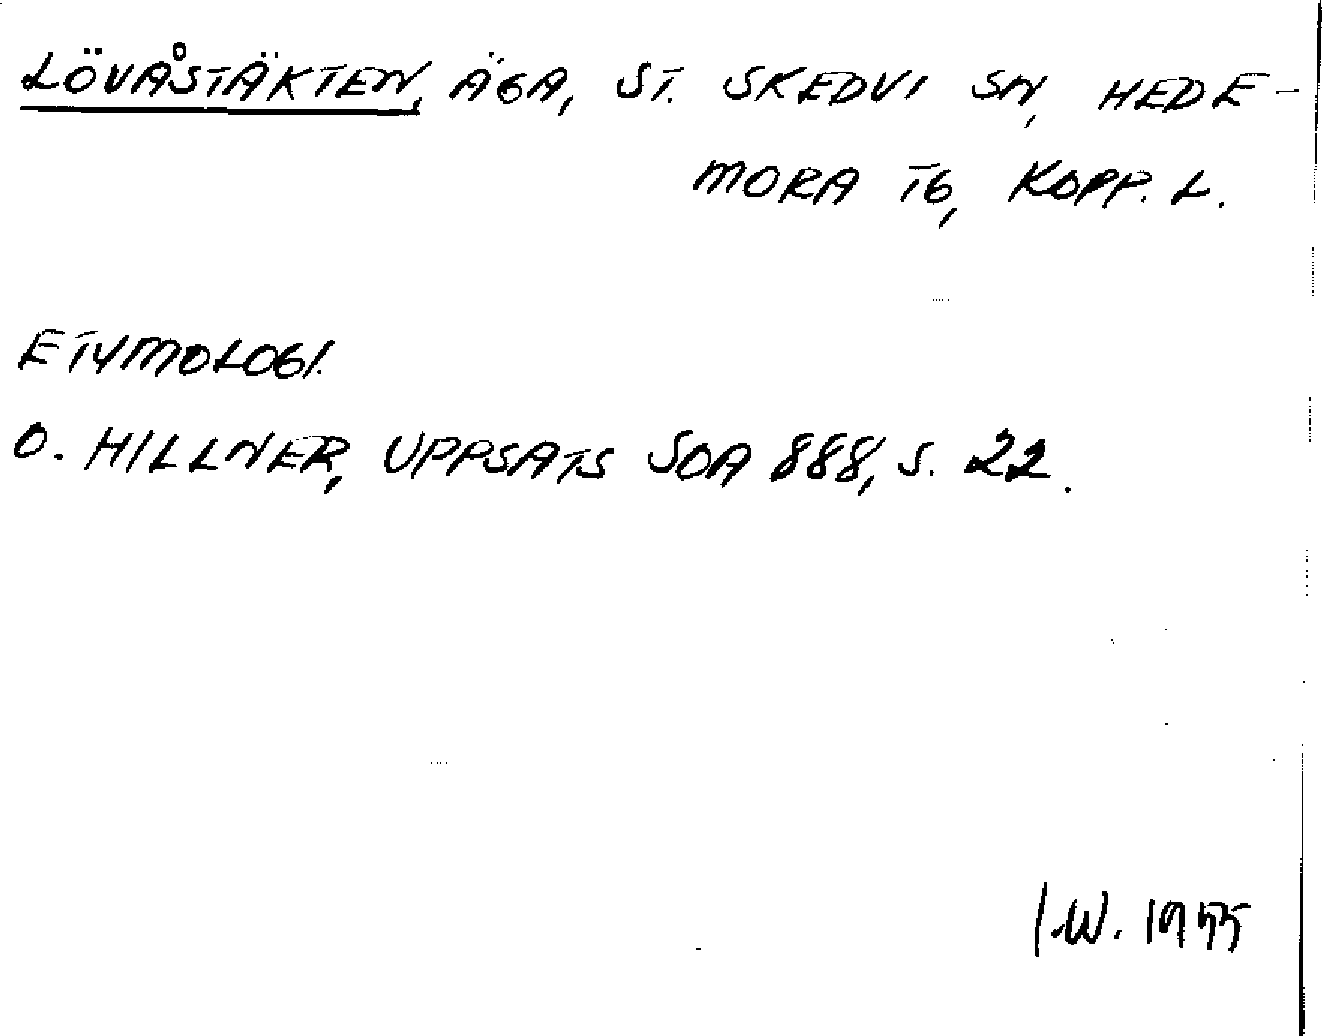 LÖVÅSTÄKTEN, ÄGA, ST. SKEDVI SN, HEDE-
MORA TG, KOPP. L.
ETYMOLOGI.
O. HILLNER, UPPSATS SOA 888, S. 22.
I.W. 1955